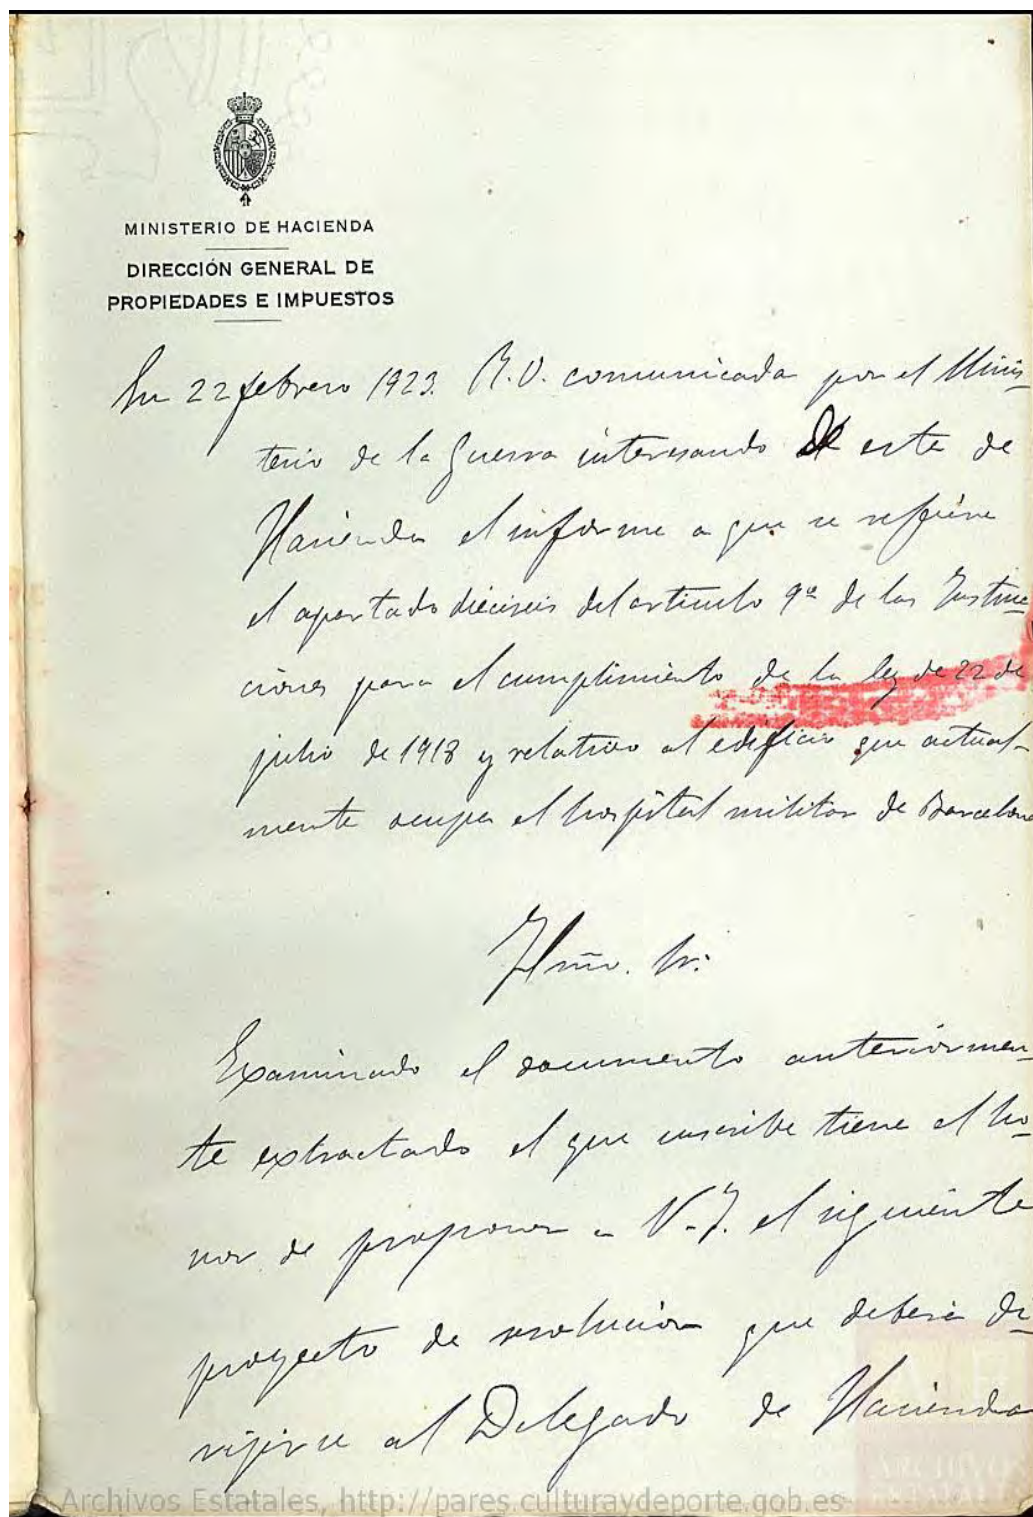 MINISTERIO DE HACIENDA
DIRECCIÓN GENERAL DE
PROPIEDADES E IMPUESTOS
En 22 febrero 1923. R.O. comunicada por el Minis-
terio de la Guerra interesando de este de
Hacienda el informe a que se refiere
el apartado dieciseis del articulo 9º de las Instruc-
ciones para el cumplimiento de la ley de 22 de
julio de 1918 y relativo al edificio que actual-
mente ocupa el hospital militar de Barcelona
Ilmo. Sr:
Examinado el documento anteriormen-
te extractado el que suscribe tiene el ho-
nor de proponer a V.I. el siguiente
proyecto de resolución que deberá di-
rijirse al Delegado de Hacienda
Archivos Estatales, http://pares.culturaydeporte.gob.es
ARCHIVOS
ESTATALES